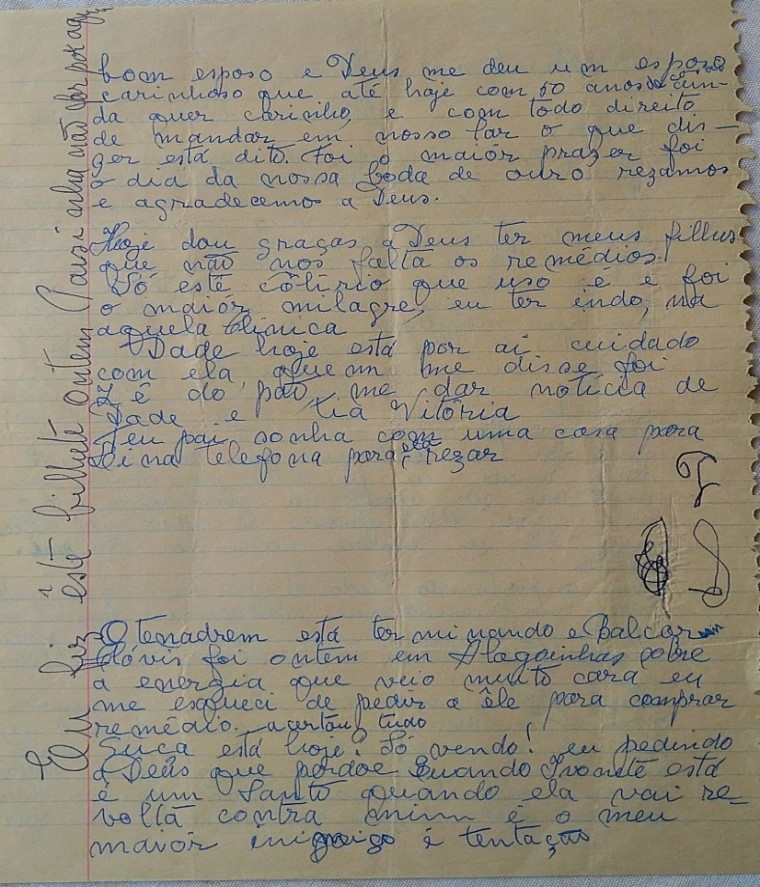 bom esposo e Deus me deu um esposo
carinhoso que até hoje com 50 anos ain-
da quer carinho, e com todo direito
de mandar em nosso lar o que dis-
ser está dito. Foi o maiór prazer foi
o dia da nossa boda de ouro rezamos
e agradecemos a Deus.
Hoje dou graças a Deus ter meus filhos
que não nos falta os remédios.
Só esté colírio que uso é e foi
o maiór milagre, eu ter indo, na
aquela Clinica
Dade hoje está por aí cuidado
com ela quem me disse foi
Zé do pão, me dar notícia de
Dade e tia Vitória
Teu pai sonha com uma casa para
telefona para ela rezar
O tenadrem está terminando e Balcor
Clóvis foi ontem em Alagoinhas sobre
a energia que veio muito cara eu
me esqueci de pedir a êle para comprar
remédio. acertou tudo
está hoje? Só vendo! eu pedindo
a Deus que perdoe Quando Ivonete está
é um Santo quando ela vai re-
volta contra mim é o meu
maiór inimigo é tentação
Eu fiz esté bilhete ontem